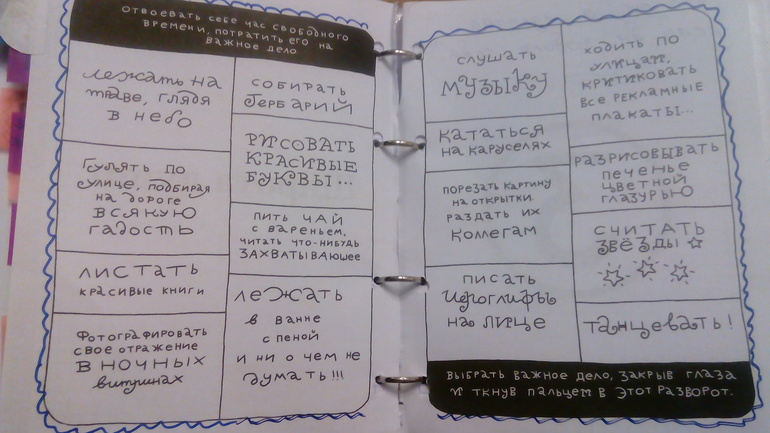 Отвоевать себе час свободного
времени, потратить его на
важное дело
лежать на
траве, глядя
в небо
гулять по
улице, подбирая
на дороге
всякую
гадость
листать
красивые книги
фотографировать
свое отражение
в ночных
витринах
собирать
гербарий
рисовать
красивые
буквы...
пить чай
с вареньем,
читать что-нибудь
захватывающее
лежать
в ванне
с пеной
и ни о чем не
думать!!!
слушать
музыку
кататься
на каруселях
порезать картину
на открытки
раздать их
коллегам
писать
иероглифы
на лице
ходить по
улицам,
критиковать
все рекламные
плакаты...
разрисовывать
печенье
цветной
глазурью
считать
звёзды
танцевать!
выбрать важное дело, закрыв глаза
и ткнув пальцем в этот разворот.